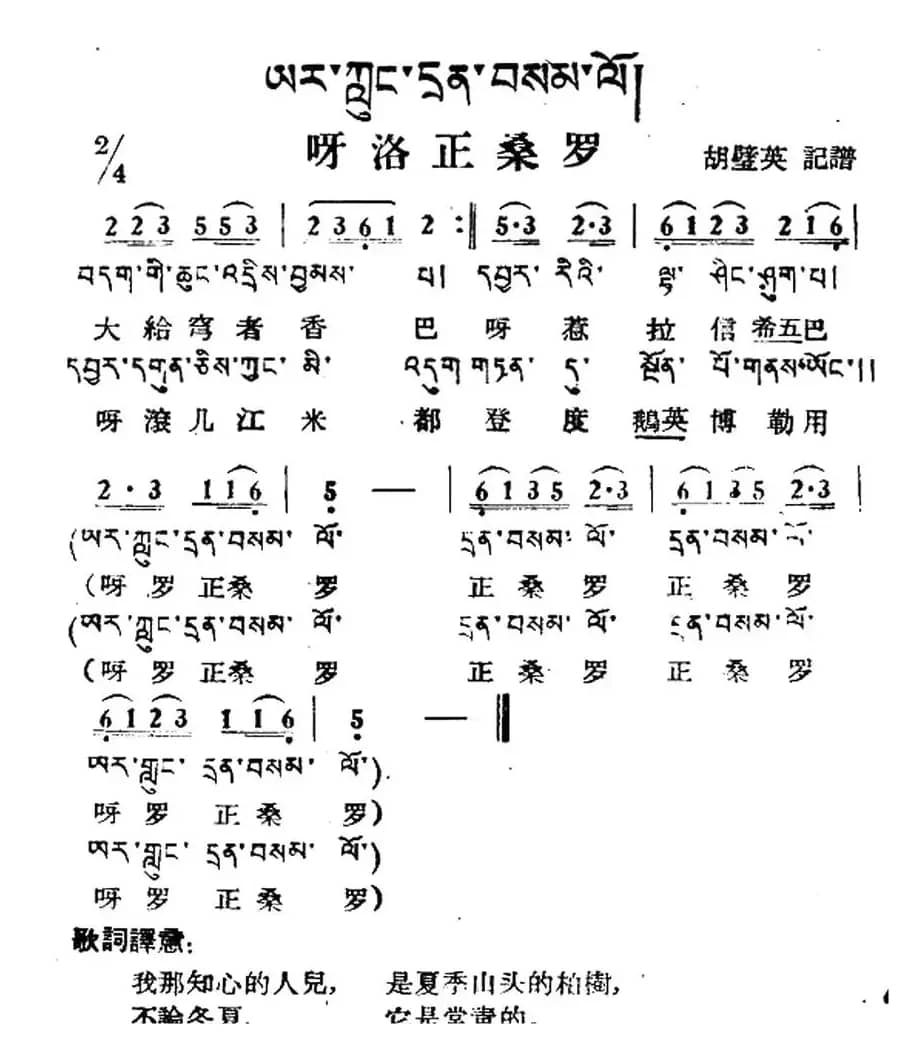 ཨར་ཀླུང་དྲན་བསམ་ལོ།
2/4 呀洛正桑罗 胡璧英 記譜
2 2 3 5 5 3 | 2 3 6 1 2 :‖ 5·3 2·3 | 6 1 2 3 2 1 6 |
བདག་གི་ཆུང་འདྲིས་བྱམས་ པ། དབྱར་ རིའི་ ལྟ་ ཤིང་ཤུག་པ།
大給穹者香 巴呀惹 拉信希五巴
དབྱར་དགུན་ཅིས་ཀྱང་ མི་ འདུག གཏན་ དུ་ སྔོན་ པོ་གནས་ཡོང་།།
呀滾几江米 都登度 鵝英博勒用
2 · 3 1 1 6 | 5 — | 6 1 3 5 2·3 | 6 1 3 5 2·3 |
(ཨར་ཀླུང་དྲན་བསམ་ ལོ་ དྲན་བསམ་ ལོ་ དྲན་བསམ་ ལོ་
(呀罗正桑 罗 正桑罗 正桑罗
(ཨར་ཀླུང་དྲན་བསམ་ ལོ་ དྲན་བསམ་ ལོ་ དྲན་བསམ་ ལོ་
(呀罗正桑 罗 正桑罗 正桑罗
6 1 2 3 1 1 6 | 5 — ‖
ཨར་ཀླུང་ དྲན་བསམ་ ལོ་)
呀罗 正桑 罗)
ཨར་ཀླུང་ དྲན་བསམ་ ལོ་)
呀罗 正桑 罗)
歌詞譯意:
我那知心的人兒, 是夏季山头的柏樹,
不論冬夏, 它是常青的。